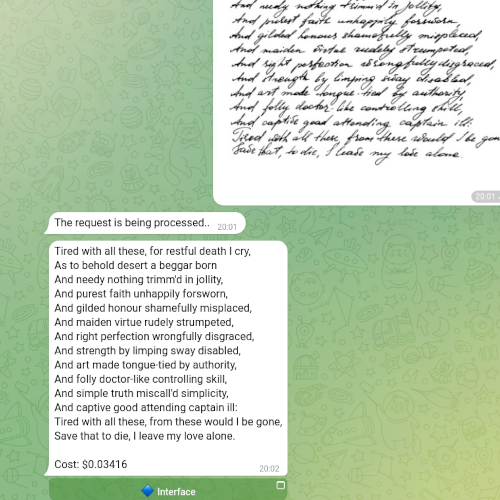 And needy nothing trimm'd in jollity,
And purest faith unhappily forsworn,
And gilded honour shamefully misplaced,
And maiden virtue rudely strumpeted,
And right perfection wrongfully disgraced,
And strength by limping sway disabled,
And art made tongue-tied by authority,
And folly doctor like controlling skill,
And captive good attending captain ill:
Tired with all these, from these would I be gon
Save that, to die, I leave my love alone.
20:01
The request is being processed.. 20:01
Tired with all these, for restful death I cry,
As to behold desert a beggar born
And needy nothing trimm'd in jollity,
And purest faith unhappily forsworn,
And gilded honour shamefully misplaced,
And maiden virtue rudely strumpeted,
And right perfection wrongfully disgraced,
And strength by limping sway disabled,
And art made tongue-tied by authority,
And folly doctor-like controlling skill,
And simple truth miscall'd simplicity,
And captive good attending captain ill:
Tired with all these, from these would I be gone,
Save that to die, I leave my love alone.
Cost: $0.03416 20:02
Interface